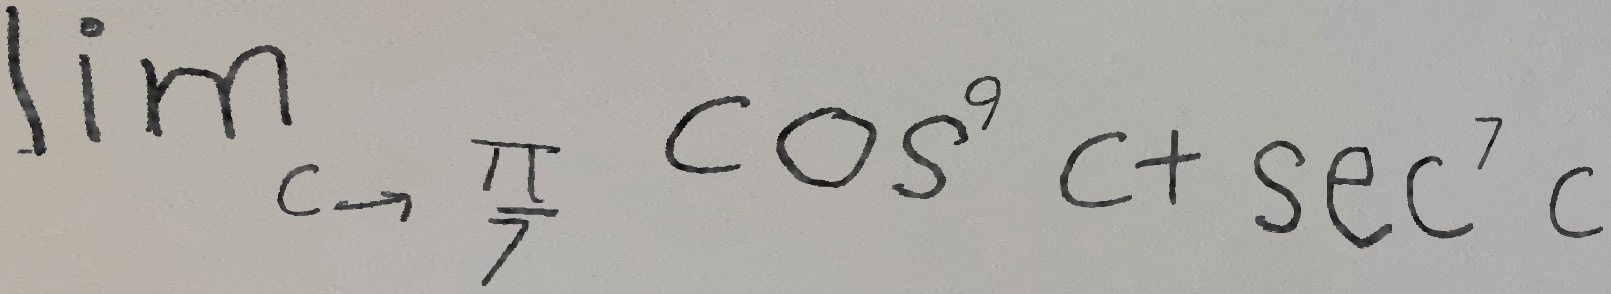 lim_{c→\frac{π}{7}} cos^9 c + sec^7 c